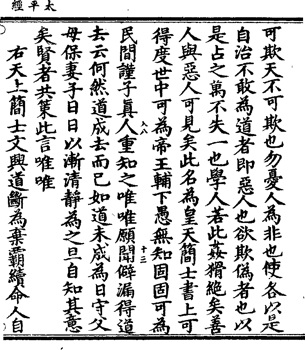 太平經
可欺天不可欺也勿憂人為非也使各以是
自治不敢為道者即惡人也欲欺偽者也以
是占之萬不失一也學人若此姦猾絕矣善
人與惡人可見矣此名為皇天簡士書上可
得度世中可為帝王輔下愚無知固固可為
入八 十二
民間謹子真人重知之唯唯願聞僻漏得道
去云何然道成去而已如道未成為日守父
母保妻子日日以漸清靜為之旦自知其意
矣賢者共策此言唯唯
右天上簡士文興道斷為棄霸續命人自